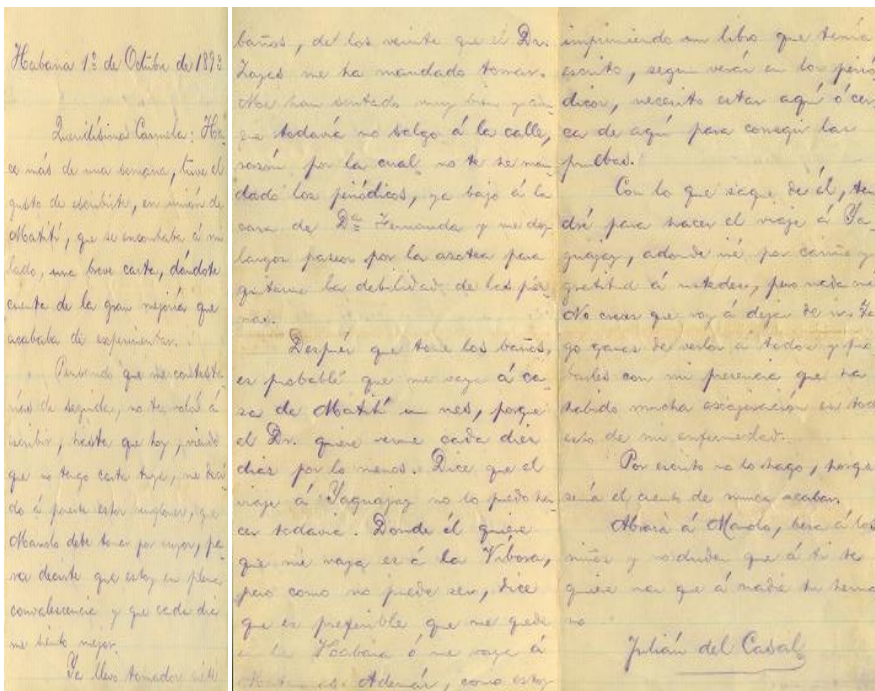 Habana 1º de Octubre de 1893
Queridísima Carmela: Ha-
ce más de una semana, tuve el
gusto de escribirte, en unión de
Matití, que se encontraba á mi
lado, una breve carta, dándote
cuenta de la gran mejoría que
acababa de experimentar.
Pensando que me contesta-
rías de seguida, no te volví á
escribir, hasta que hoy, viendo
que no tengo carta tuya, me deci-
do á ponerte estos renglones, que
Manolo debe tomar por suyos, pa-
ra decirte que estoy en plena
convalescencia y que cada día
me siento mejor.
Ya llevo tomados siete
baños, de los veinte que el Dr.
Zayas me ha mandado tomar.
Me han sentado muy bien y aun-
que todavía no salgo á la calle,
razón por la cual no te he man-
dado los periódicos, ya bajo á la
casa de Dª Fernanda y me doy
largos paseos por la azotea para
quitarme la debilidad de las pier-
nas.
Después que tome los baños,
es probable que me vaya á ca-
sa de Matití un mes, porque
el Dr. quiere verme cada diez
días por lo menos. Dice que el
viaje á Yaguajay no lo puedo ha-
cer todavía. Donde él quiere
que me vaya es á la Víbora,
pero como no puede ser, dice
que es preferible que me quede
en la Habana ó me vaya á
Además, como estoy
imprimiendo un libro que tenía
escrito, segun verán en los perió-
dicos, necesito estar aquí ó cer-
ca de aquí para conseguir las
pruebas.
Con lo que saque de él, ten-
dré para hacer el viaje á Ya-
guajay, adonde iré por cariño y
gratitud á ustedes, pero nada más
No creas que voy á dejar de ir. Ten-
go ganas de verlos á todos y pro-
barles con mi presencia que ha
habido mucha exageración en todo
esto de mi enfermedad.
Por escrito no lo hago, porque
sería el cuento de nunca acabar.
Abraza á Manolo, besa á los
niños y no duden que á ti te
quiere más que á nadie tu herma-
no
Julián del Casal